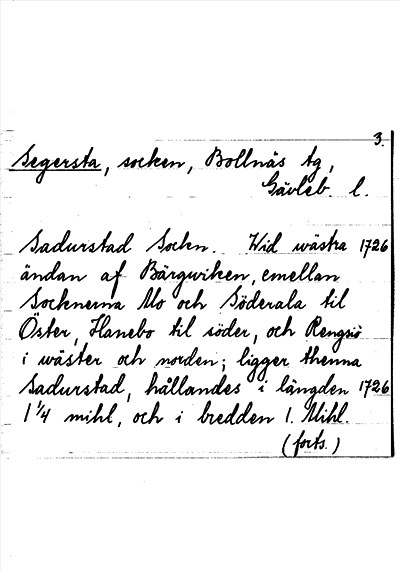 3.
Segersta, socken, Bollnäs tg,
Gävleb. l.
Sadurstad Sockn. Wid wästra 1726
ändan af Bärgwiken, emellan
Socknerna Mo och Söderala til
Öster, Hanebo til söder, och Rengsiö
i wäster och norden; ligger thenna
Sadurstad, hållandes i längden 1726
1 1/4 mihl, och i bredden 1. Mihl.
(forts.)